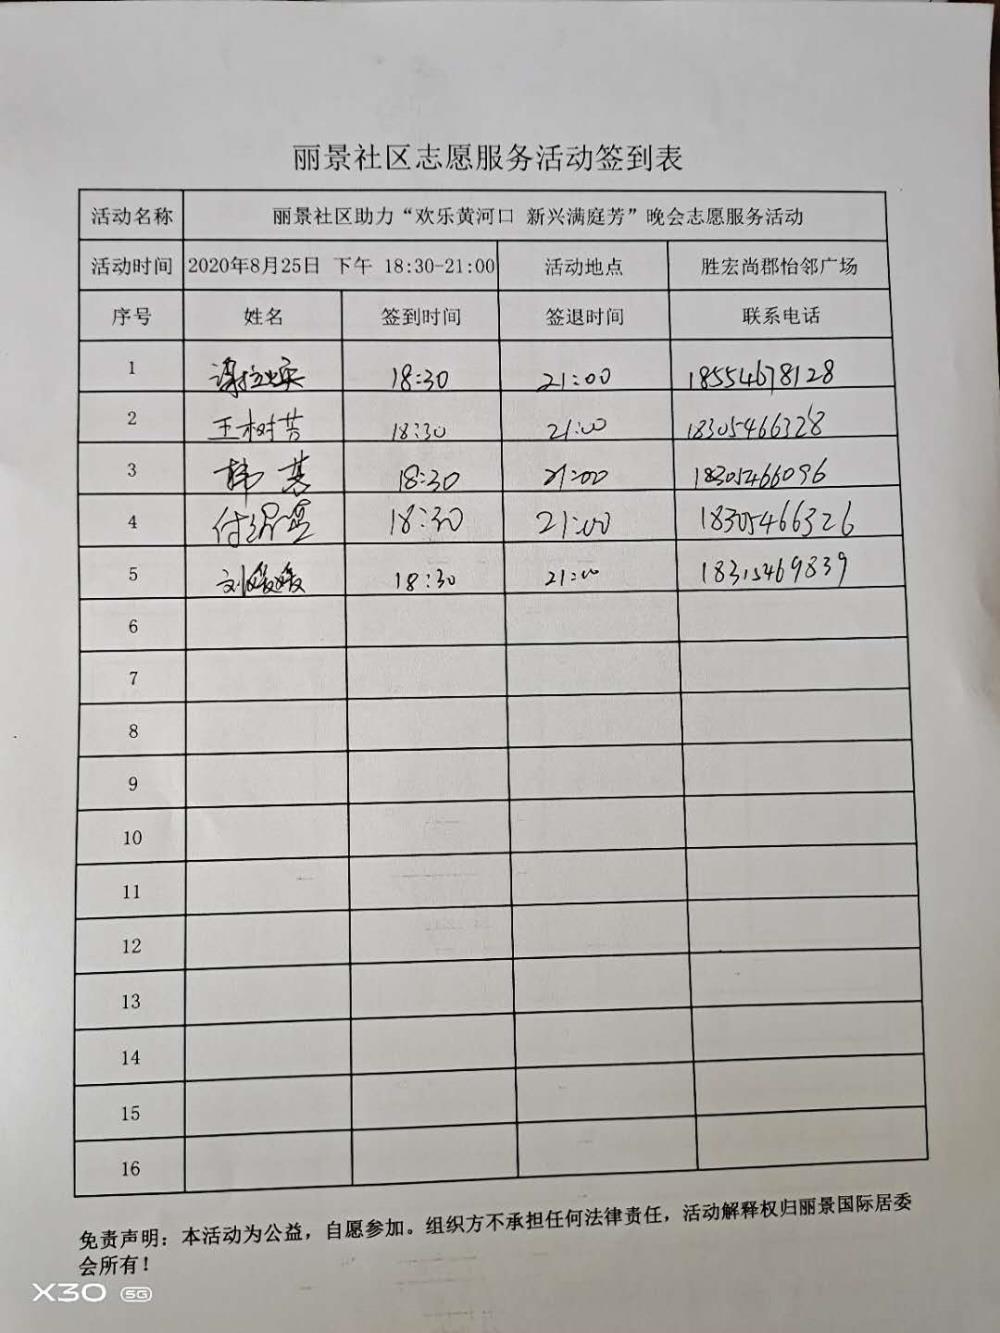 丽景社区志愿服务活动签到表
活动名称 丽景社区助力“欢乐黄河口 新兴满庭芳”晚会志愿服务活动
活动时间 2020年8月25日 下午 18:30-21:00 活动地点 胜宏尚郡怡邻广场
序号 姓名 签到时间 签退时间 联系电话
1 18:30 21:00 18554678128
2 王树芳 18:30 21:00 18305466328
3 韩 18:30 21:00 18305466096
4 付 18:30 21:00 18305466326
5 刘媛媛 18:30 21:00 18315469839
6
7
8
9
10
11
12
13
14
15
16
免责声明：本活动为公益，自愿参加。组织方不承担任何法律责任，活动解释权归丽景国际居委
会所有！
X30 5G